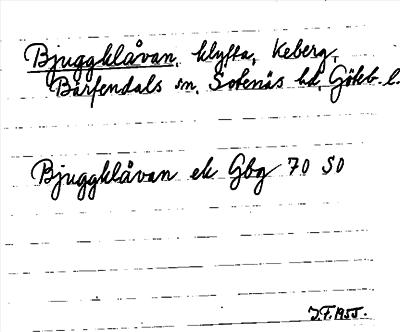 Bjuggklåvan, klyfta, Keberg,
Bärfendals sn, Sotenäs hd, Göteb. l.
Bjuggklåvan ek Gbg 70 SO
J.F. 1955.